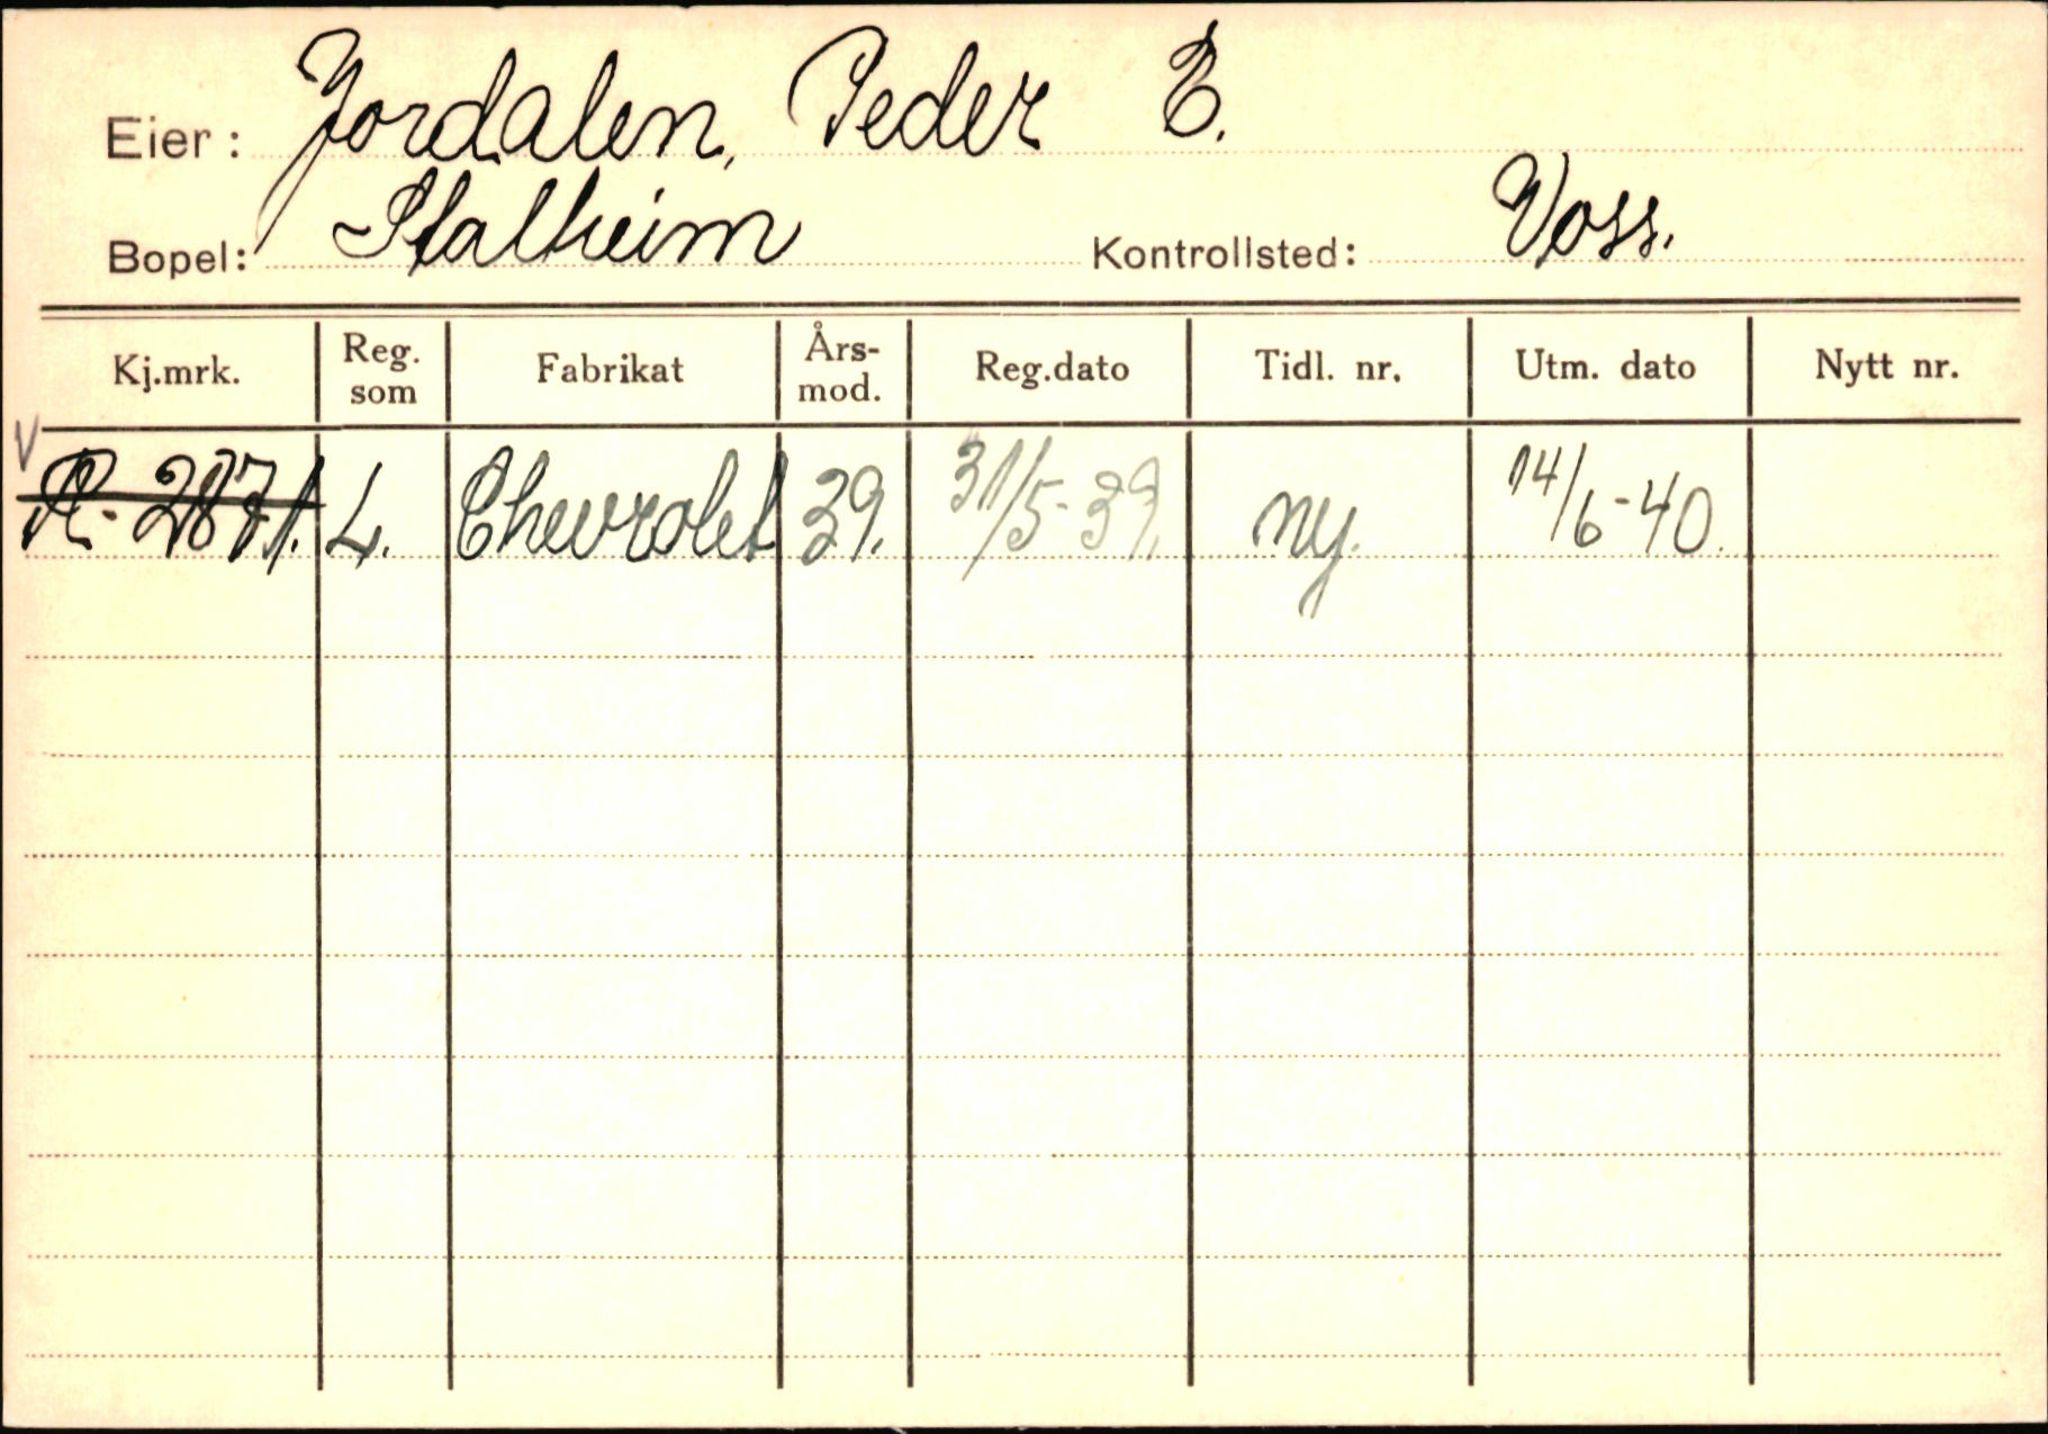 Eier: Jordalen, Peder E.
Bopel: Stalheim Kontrollsted: Voss.
Kj.mrk. Reg. som Fabrikat Års-mod. Reg.dato Tidl. nr. Utm. dato Nytt nr.
V R-2871. L. Chevrolet 39. 31/5-39. ny. 14/6-40.